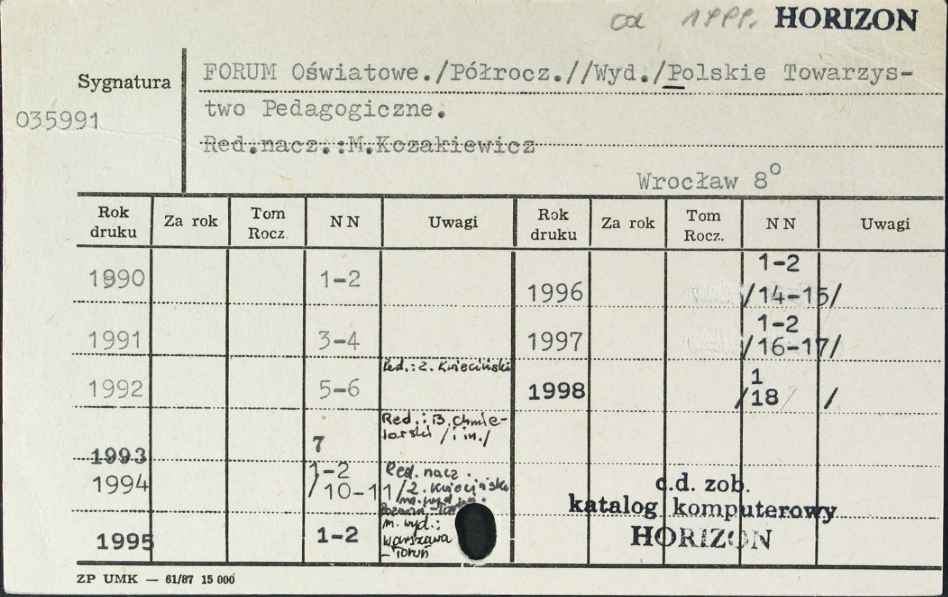 od 1999. HORIZON
Sygnatura
035991
FORUM Oświatowe./Półrocz.//Wyd./Polskie Towarzys-
two Pedagogiczne.
Red.nacz.:M.Kozakiewicz
Wrocław 8°
Rok druku Za rok Tom Rocz. N N Uwagi Rok druku Za rok Tom Rocz. N N Uwagi
1990 1-2
1991 3-4
1992 5-6 Red.: Z. Kwieciński
1993 7 Red.: B. Chmie-
larski /i in./
1994 1-2 /10-11/ Red. nacz.
Z. Kwieciński
1995 1-2 m. wyd.:
Warszawa
- Toruń
1996 1-2 /14-15/
1997 1-2 /16-17/
1998 1 /18 /
c.d. zob.
katalog komputerowy
HORIZON
ZP UMK — 61/87 15 000